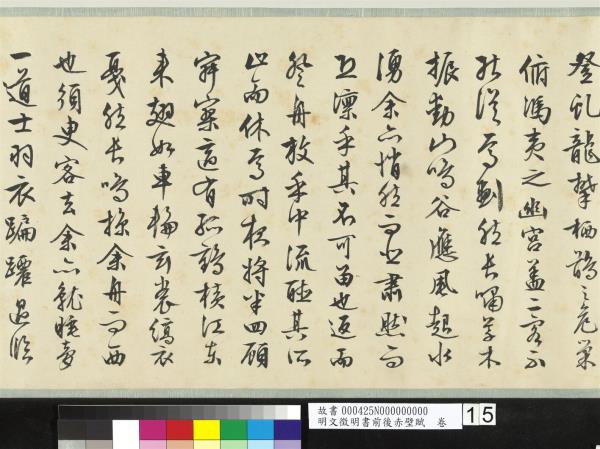 登虬龍攀栖鶻之危巢
俯馮夷之幽宮蓋二客不
能從焉劃然長嘯草木
振動山鳴谷應風起水
湧余亦悄然而悲肅然而
恐凜乎其不可留也返而
登舟放乎中流聽其所
止而休焉時夜將半四顧
寂寥適有孤鶴橫江東
來翅如車輪玄裳縞衣
戛然長鳴掠余舟而西
也須臾客去余亦就睡夢
一道士羽衣蹁躚過臨
故書 000425N000000000
明文徵明書前後赤壁賦 卷
15